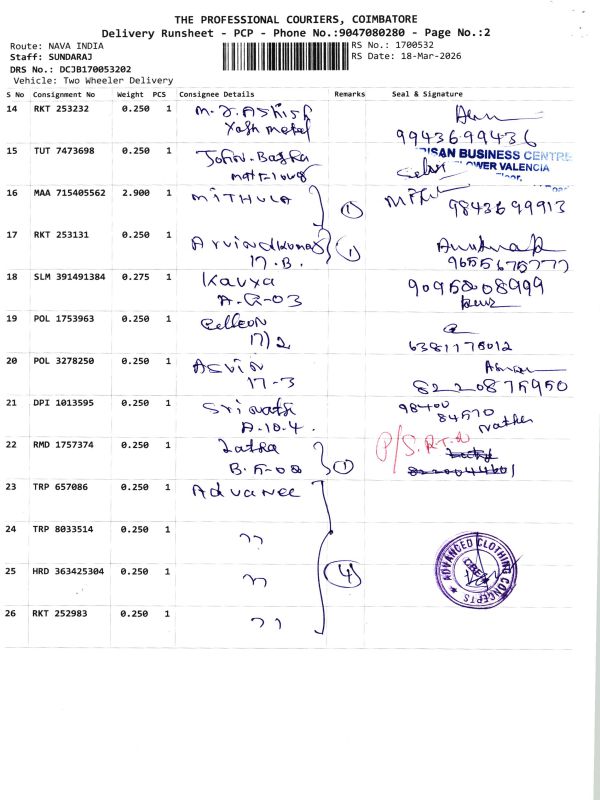 THE PROFESSIONAL COURIERS, COIMBATORE
Delivery Runsheet - PCP - Phone No.:9047080280 - Page No.:2
Route: NAVA INDIA
RS No.: 1700532
Staff: SUNDARAJ
RS Date: 18-Mar-2026
DRS No.: DCJB170053202
Vehicle: Two Wheeler Delivery
S No Consignment No Weight PCS Consignee Details Remarks Seal & Signature
14 RKT 253232 0.250 1 M.J. Ashish
Yash metal
9943699436
15 TUT 7473698 0.250 1 John. Baska
ISAN BUSINESS CENTRE
LOWER VALENCIA
16 MAA 715405562 2.900 1 MITHULA 1
9843699913
17 RKT 253131 0.250 1 Arvindkumar 1
17.B. 9655675777
18 SLM 391491384 0.275 1 Kavya 9095808999
A-G-03
19 POL 1753963 0.250 1
17/2 6381178012
20 POL 3278250 0.250 1 Asvin
17-3 8220875950
21 DPI 1013595 0.250 1 Sri 98400
A.10.4. 84570
22 RMD 1757374 0.250 1 P/S.R.T.
B.5-08 1 8220044601
23 TRP 657086 0.250 1 Advance
24 TRP 8033514 0.250 1 ,,
25 HRD 363425304 0.250 1 ,, 4
26 RKT 252983 0.250 1 ,,
ADVANCED CLOTHING CONCEPTS